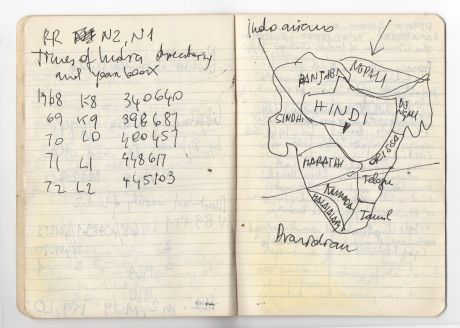 RR N2, N1
Times of India directory
and year book
1968 K8 340640
69 K9 398687
70 L0 400457
71 L1 448617
72 L2 445103
Indo arians
PANJABI
NEPALI
HINDI
SINDHI
MARATHI
ORISSA
Telegu
Kannada
Tamil
Dravidian